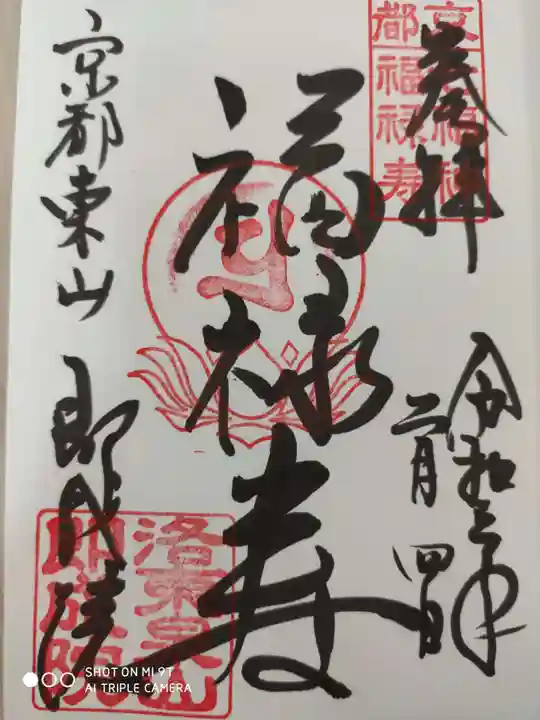 奉拝
令和三年
二月四日
福禄寿
京都東山 即成院
京都
七福神
福禄寿
洛東泉山
即成院
SHOT ON MI 9T
AI TRIPLE CAMERA